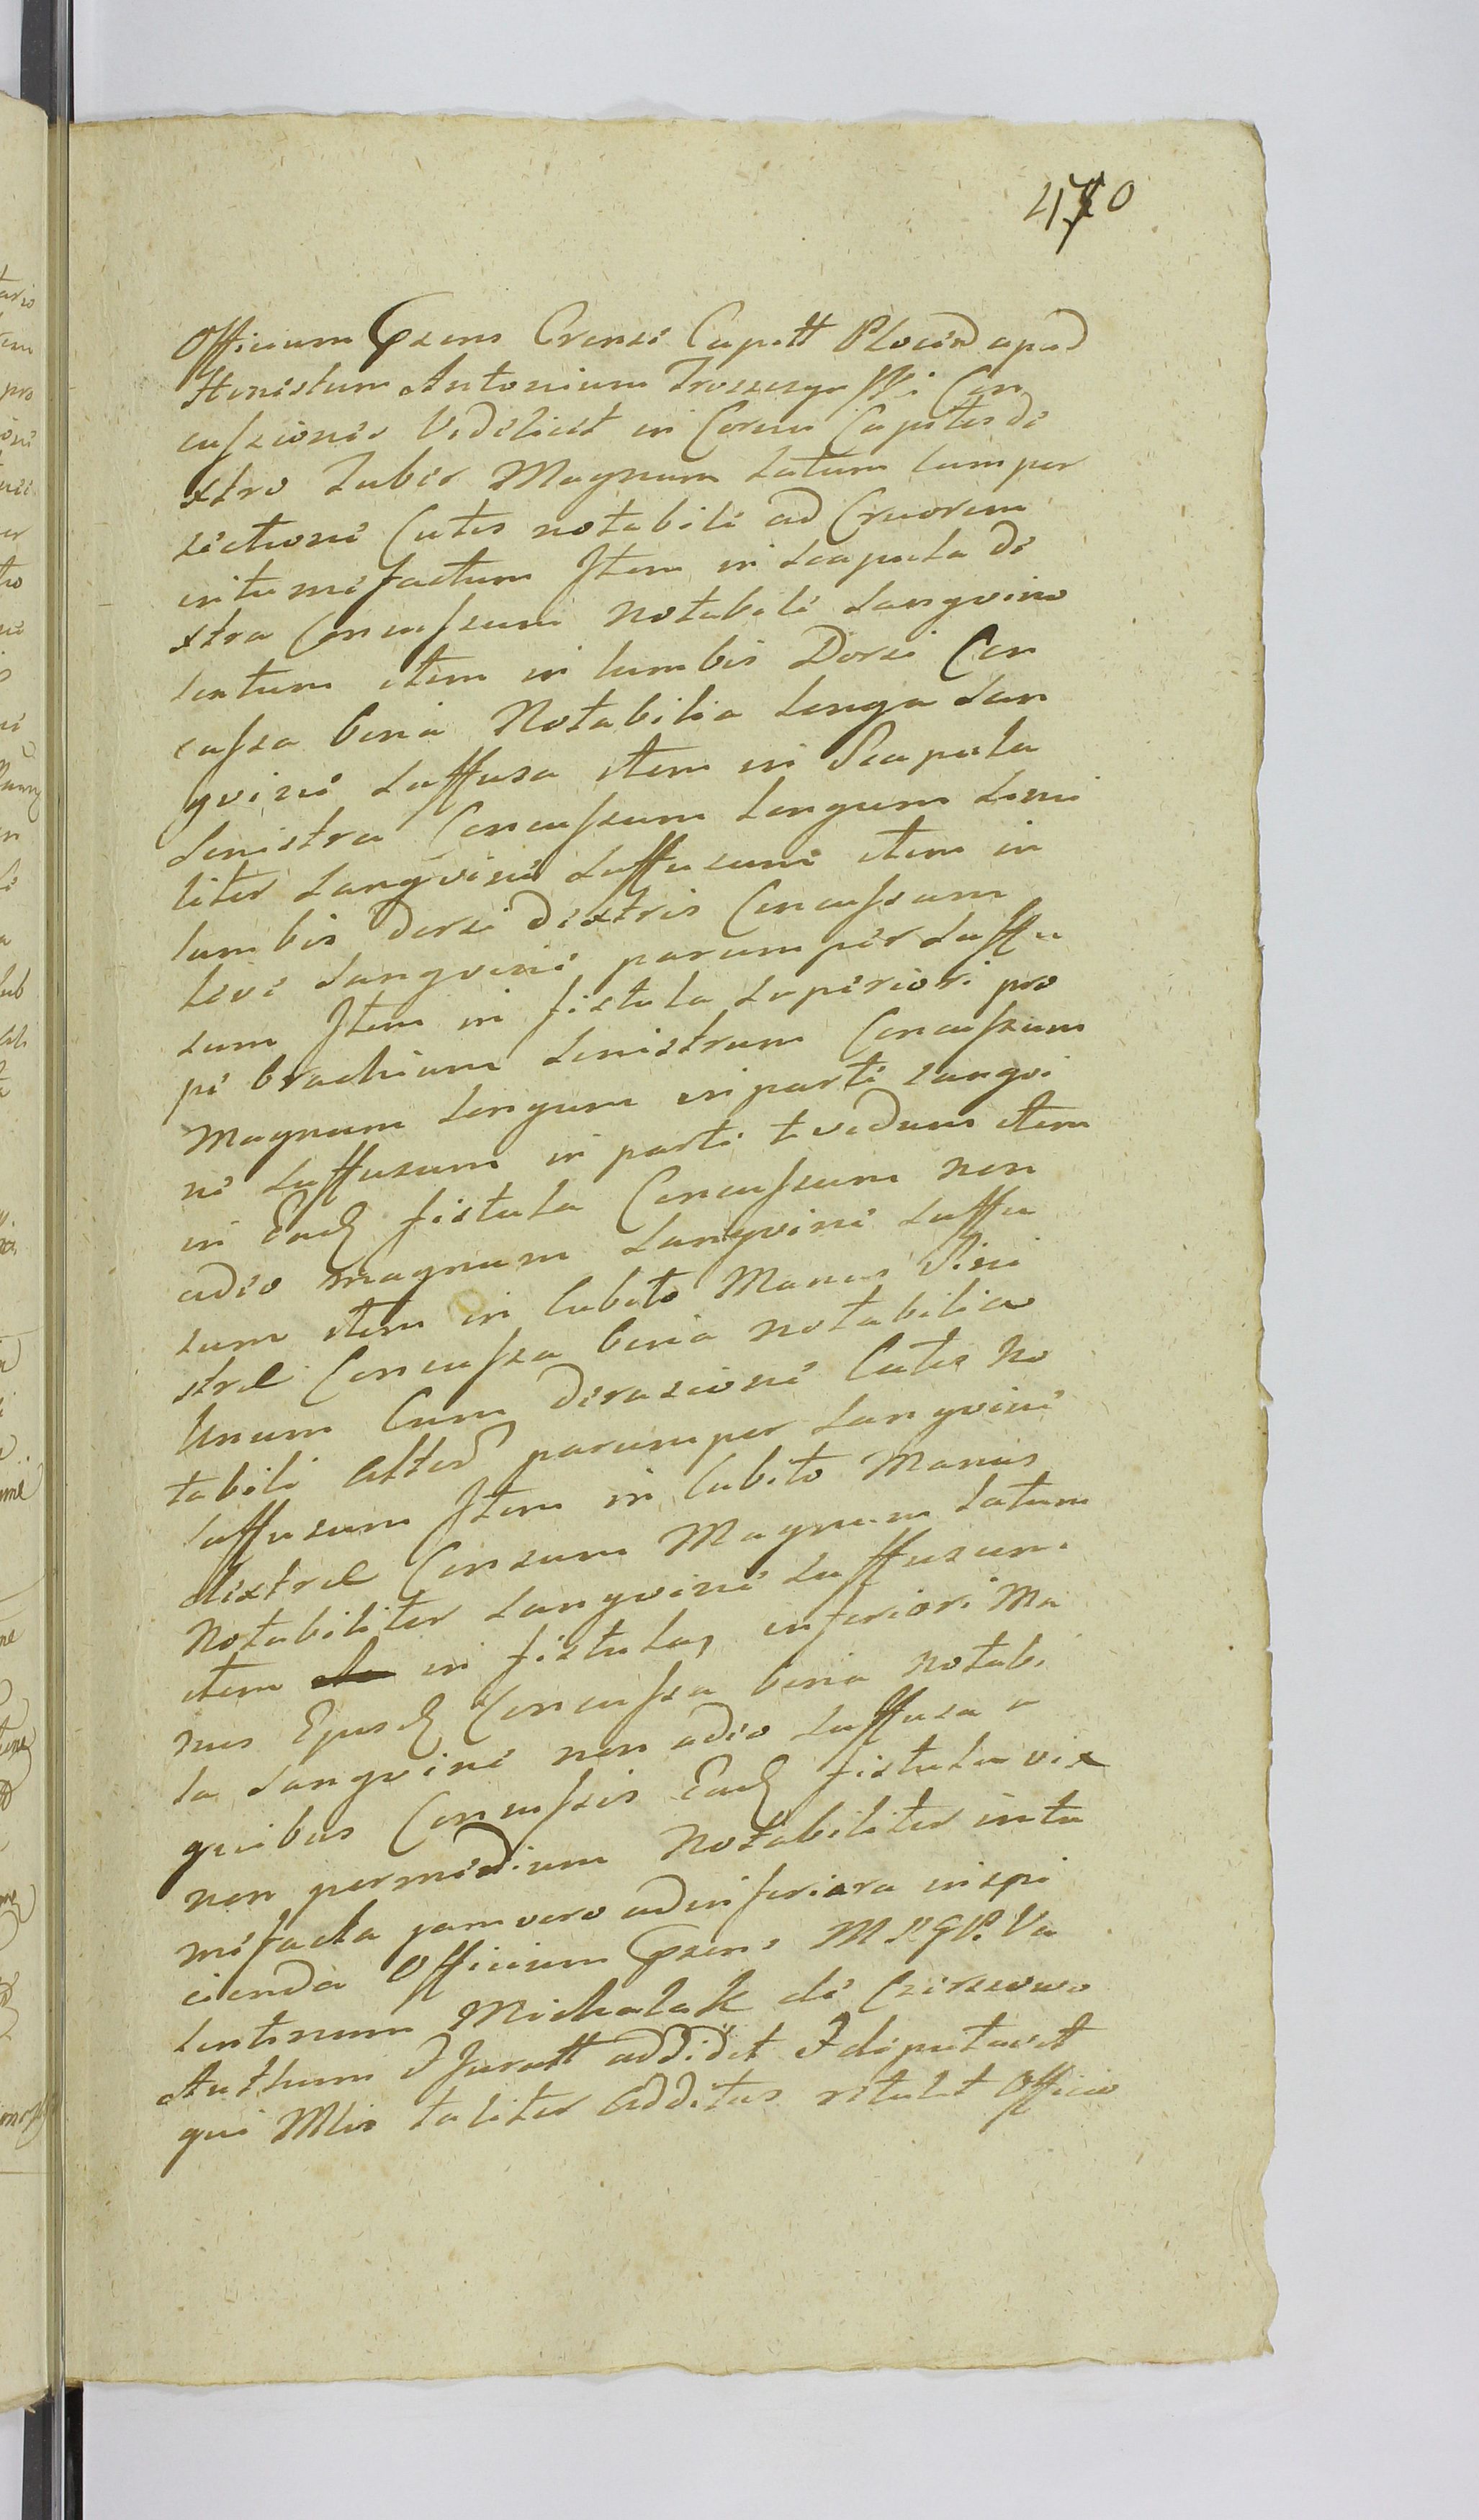 470
Officium Gxens Crensi Capitt Plocen apud
Honestum Antonium Con
cussiones Videlicet in Cornu Capitis de
xtro Tuber Magnum Latum cum per
sectione Cutis notabili ad Cruorem
intumefactum Item in scapula de
xtra Concussum notabile sangvino
lentum item in lumbis Dorsi Con
cussa bina Notabilia longa san
gvine suffusa item in Scapula
sinistra Concussum longum simi
liter sangvine suffusum item in
lumbis dorsi dextris Concussum
leve sangvine parumper suffu
sum Item in fistula superiori pro
pe brachium sinistrum Concussum
Magnum longum in parte sangvi
ne suffusum in parte lividum item
in Ead fistula Concussum non
adeo magnum sangvine suffu
sum item in Cubito Manus Sini
strae Concussa bina notabilia
Unum Cum derasione Cutis No
tabili alterum parumper sangvine
suffusum Item in Cubito Manus
dextrae Consum Magnum latum
Notabiliter sangvine suffusum.
item in fistula inferiori Ma
nus Ejusd Concussa bina notabi
la sangvine non adeo suffusa a
quibus Concussis Ead fistula vix
non permedium Notabiliter intu
mefacta jam vero ad inferiora inspi
cienda Officium Gxens M Va
lentinum Michalak de
Authum Juratt addidit & deputavit
qui Mlis taliter additus retulit Officio